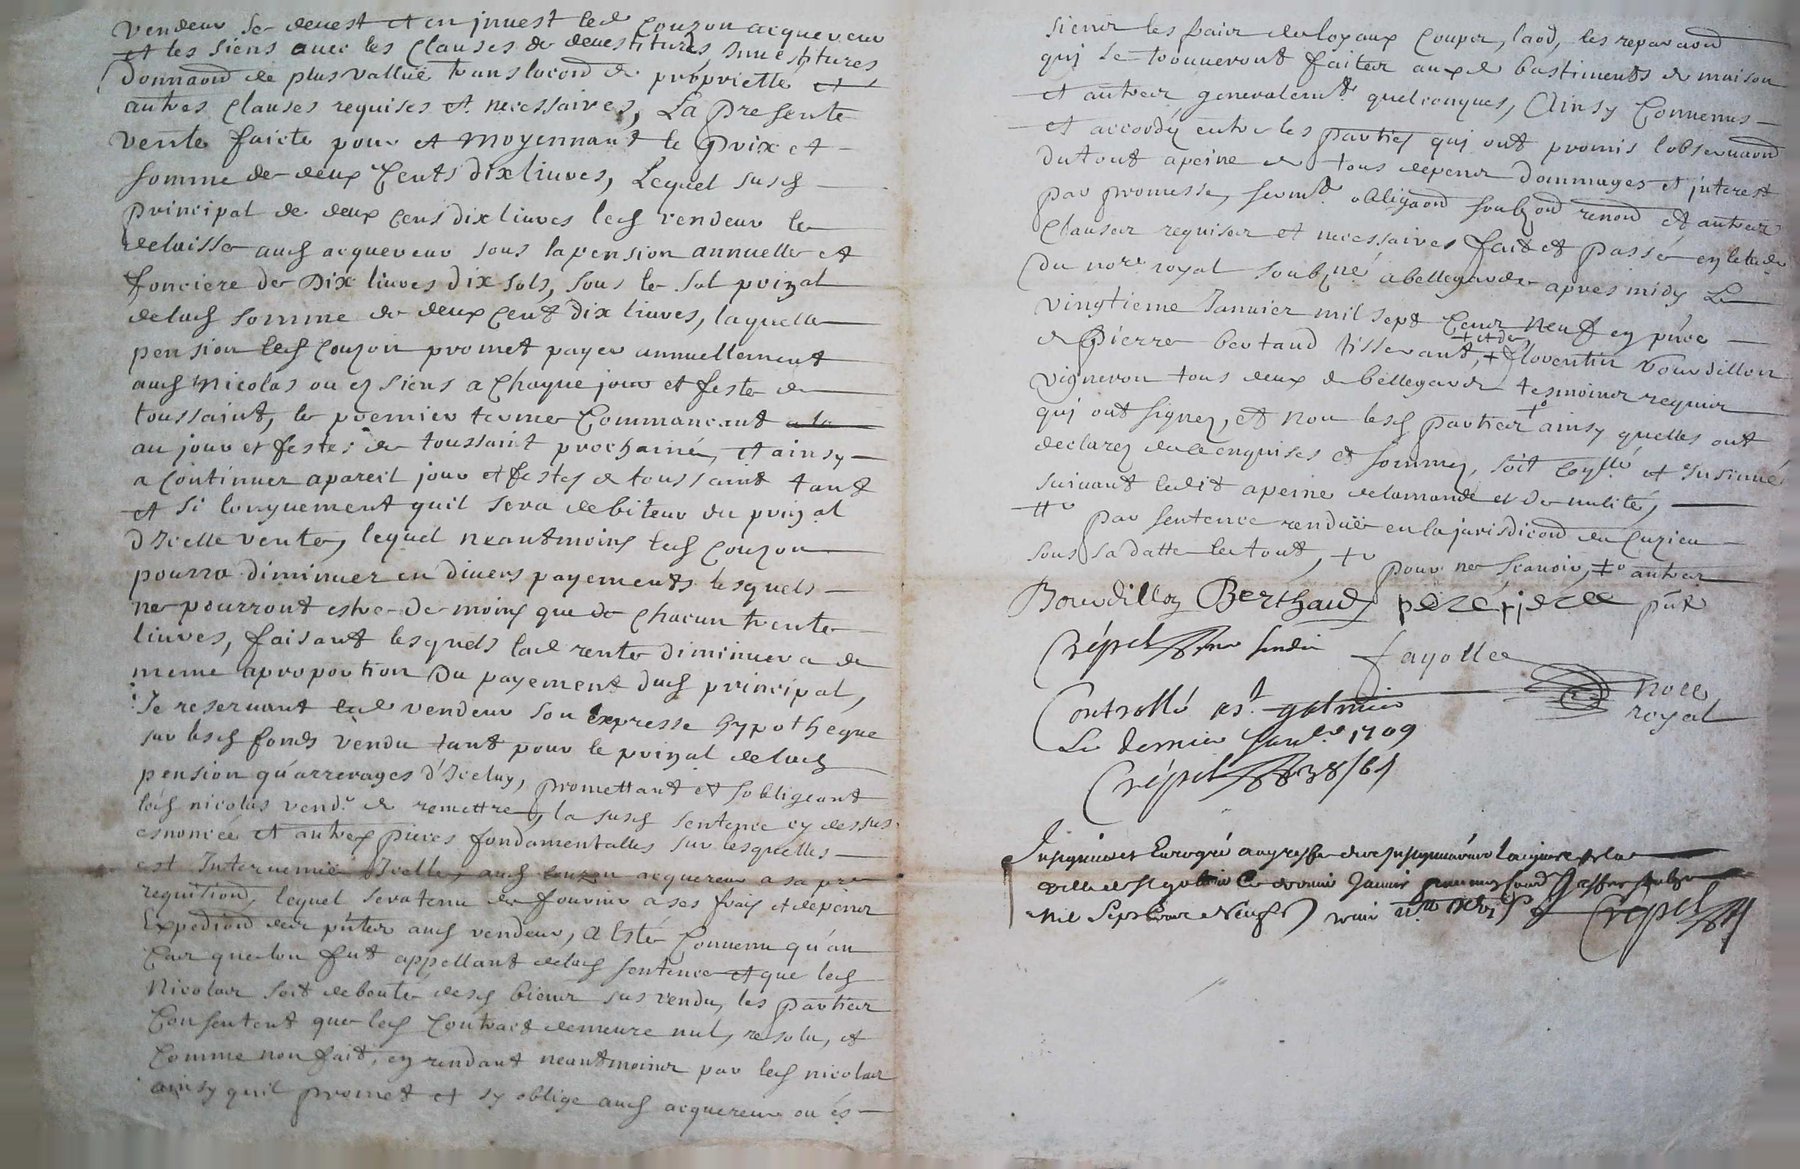 vendeur se devest et en jnvest led Couzon acquereur
et les siens avec les clauses de devestitures Investitures
Donnaond de plus vallue translocond de proprietté et
autres clauses requises et necessaires, La presente
vente faicte pour et moyennant le prix et
somme de deux Cents dix liuves, Lequel susd
principal de deux cens dix liuves led vendeur le
delaisse aud acquereur sous la pension annuelle et
fonciere de Dix liuves dix sols, sous le sol prinzal
delad somme de deux Cent Dix liuves, laquelle
pension led Couzon promet payer annuellement
aud Nicolas ou es siens a chaque jour et feste de
toussaint, le premier terme Commancant
au jour et festes de toussaint prochaine, et ainsy
a continuer apareil jour et festes de toussaint tant
et si longuement quil sera debiteur du prinzal
d'Icelle vente, lequel neantmoins led Couzon
pourra diminuer en divers payements lesquels
ne pourront estre de moins que de chacun trente
liuves, faisant lesquels lad rente diminuera de
meme aproportion Du payement dud principal,
Se reservant led vendeur son expresse hypotheque
sur lesd fonds vendu tant pour le prinzal delad
pension qu'arrerages d'Icelny, promettant et sobligeant
led nicolas vend.r de remettre, la susd sentence cy dessus
esnoncée et autres pieces fondamentalles sur lesquelles
est Intervenue Icelle, aud Couzon acquereur a sa pre
requitiond, lequel sera tenu de fournir a ses frais et depens
Expediond des pntes aud vendeur, A Esté Convenu qu'au
Cas que lon fut appellant delad sentence et que led
Nicolas soit deboute desd biens sus vendu, les parties
Consentent que led Contract demeure nul, resolu, et
Comme non fait, en rendant neantmoins par led nicolas
ainsy quil promet et sy oblige aud acquereur ou es
siens les frais deloyaux Coupes, laod, les reparaond
qui se trouveront faites aux bastiments de maison
et autres generalem.t quelconques, Ainsy Convenus
et accordé entre les parties qui ont promis lobservaond
Du tout apeine de tous depens Dommages et jnterest
par promesse, serm.t obligaond soubzond renond et autres
Clauses requises et necessaires fait et passé en letude
Du nore royal soubzné a bellegarde apres midy Le
vingtieme Janvier mil sept Cens Neuf en pnce
de Pierre bertaud tisserant, + florentin Bourdillon
vigneron tous deux de bellegarde tesmoins requis
qui ont signez, et non lesd parties ainsy quelles ont
declarez de ce enquises et sommez, soit coñllé et Insinué
suivant ledit apeine delamande et de nulité,
par sentence renduë en la jurisdiciond de Cuzieu
sous sa datte le tout, pour ne scavoir, autres
Bourdillon Berthaud pnt
Crépet
fayolle
nore
royal
Controllé a St. galmier
Le dernier Janv.r 1709
Crépet
Mil Sept Cens Neuf
Crépet